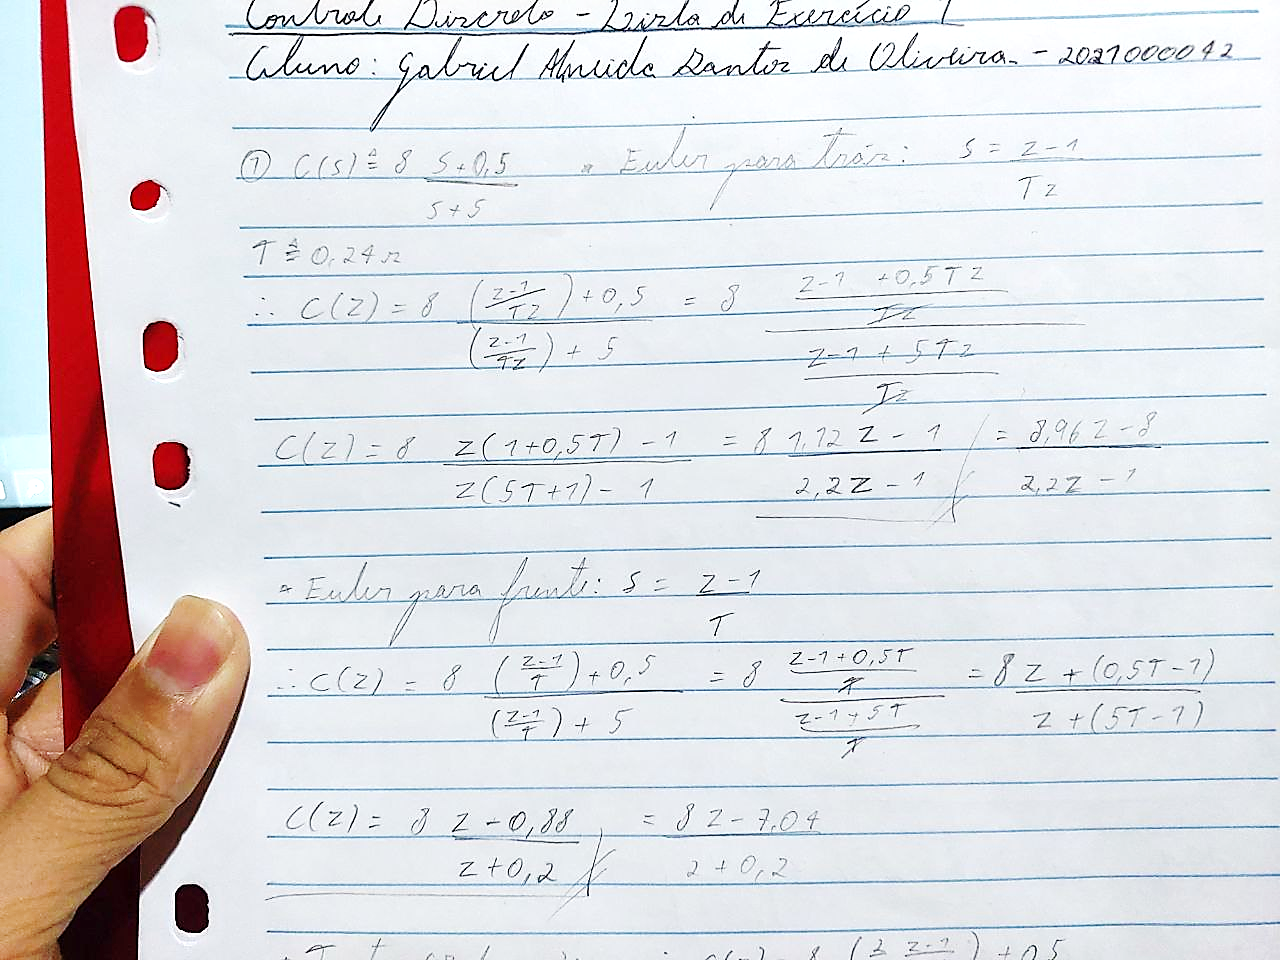 Controle Discreto - Lista de Exercício 1
Aluno: Gabriel Almeida Santos de Oliveira - 2021000042
① C(s) ≜ 8 (s+0,5)/(s+5) * Euler para trás: s = (z-1)/(Tz)
T ≜ 0,24 s
∴ C(z) = 8 ((z-1)/(Tz))+0,5 / ((z-1)/(Tz))+5 = 8 ((z-1+0,5Tz)/(Tz)) / ((z-1+5Tz)/(Tz))
C(z) = 8 (z(1+0,5T)-1)/(z(5T+1)-1) = 8 (1,12z-1)/(2,2z-1) = (8,96z-8)/(2,2z-1)
* Euler para frente: s = (z-1)/T
∴ C(z) = 8 ((z-1)/T)+0,5 / ((z-1)/T)+5 = 8 ((z-1+0,5T)/T) / ((z-1+5T)/T) = 8 (z+(0,5T-1))/(z+(5T-1))
C(z) = 8 (z-0,88)/(z+0,2) = (8z-7,04)/(z+0,2)